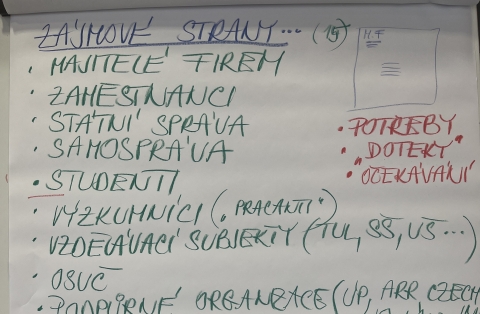 ZÁJMOVÉ STRANY... (15)
M.F
• MAJITELÉ FIREM
• ZAMĚSTNANCI
• STÁTNÍ SPRÁVA
• SAMOSPRÁVA
• STUDENTI
• VÝZKUMNÍCI („PRACANTI“)
• VZDĚLÁVACÍ SUBJEKTY (TUL, SŠ, VŠ...)
• OSVČ
• PODPŮRNÉ ORGANIZACE (ÚP, ARR, CZECH
• POTŘEBY
• „DOTEKY“
• OČEKÁVÁNÍ